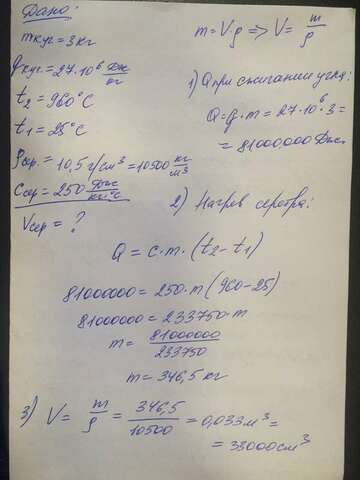 Дано:
m куг = 3 кг
q куг. = 27·10⁶ Дж/кг
t₂ = 960°C
t₁ = 25°C
ρ сер. = 10,5 г/см³ = 10500 кг/м³
C сер = 250 Дж/кг·°C
V сер = ?
m = Vρ => V = m/ρ
1) Q при сжигании угля:
Q = q·m = 27·10⁶·3 =
= 81000000 Дж.
2) Нагрев серебра:
Q = c·m·(t₂ - t₁)
81000000 = 250·m(960-25)
81000000 = 233750·m
m = 81000000/233750
m = 346,5 кг
3) V = m/ρ = 346,5/10500 = 0,033 м³ =
= 33000 см³